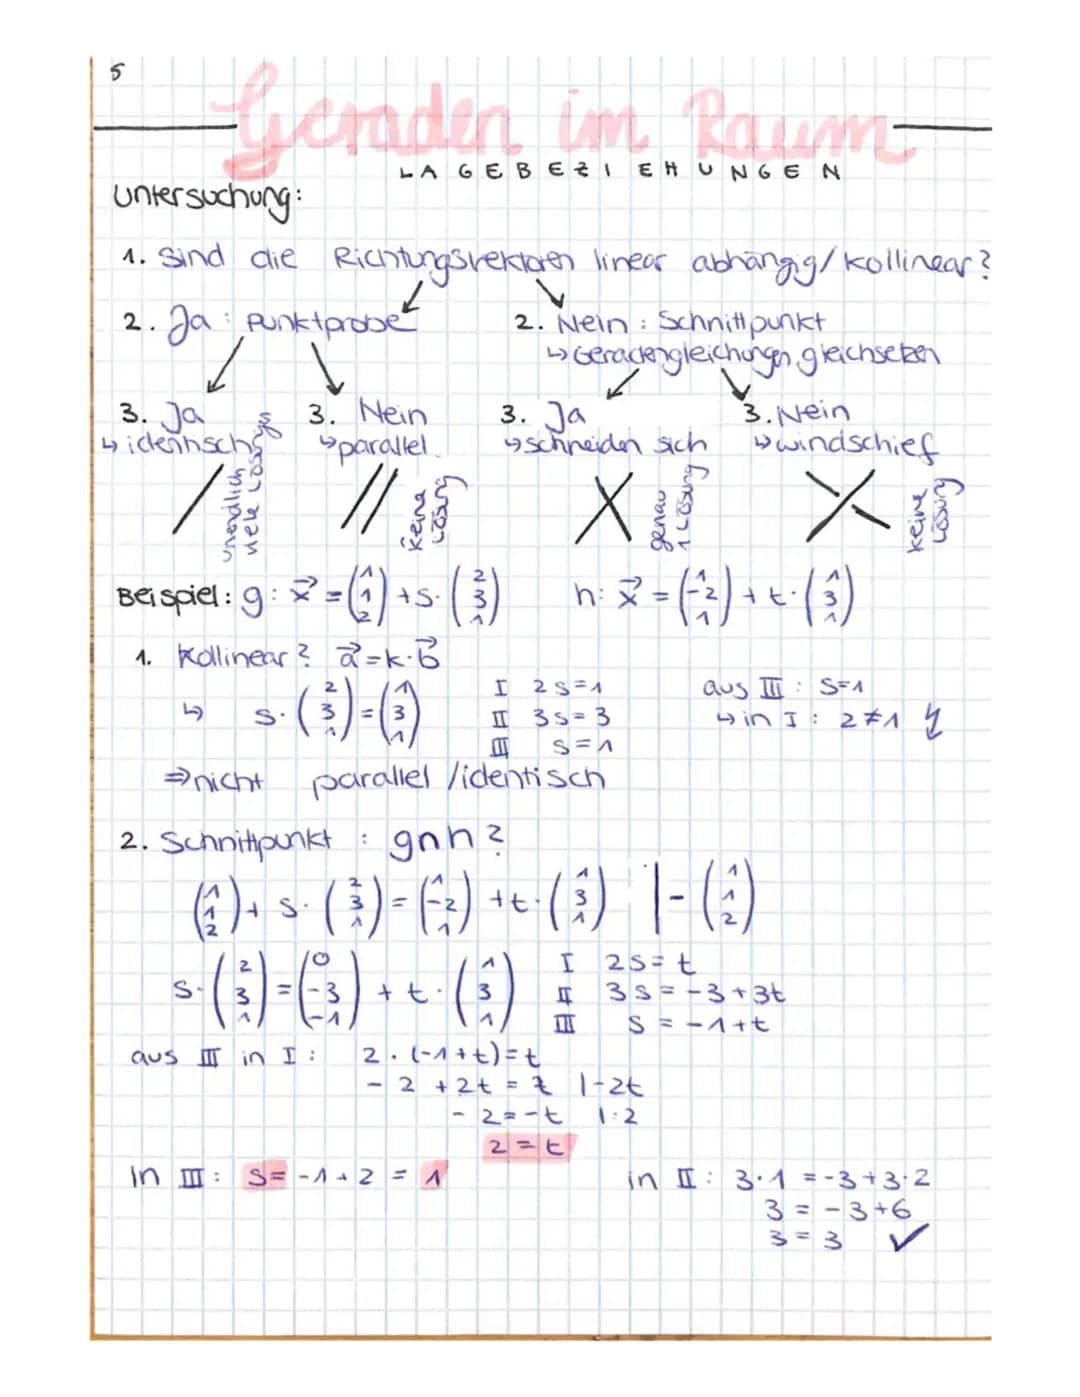 5
Geraden im Raum
LAGEBEZIEHUNGEN
Untersuchung:
1. Sind die Richtungsvektoren linear abhängig/kollinear?
2. Ja : Punktprobe
2. Nein : Schnittpunkt
↳ Geradengleichungen gleichsetzen
3. Ja
↳ identisch
unendlich viele Lösungs
3. Nein
↳ parallel
keine Lösung
3. Ja
↳ schneiden sich
genau 1 Lösung
3. Nein
↳ windschief
keine Lösung
Beispiel: g: x⃗ = (1 1 2) + s · (2 3 1) h: x⃗ = (1 -2 1) + t · (1 3 1)
1. Kollinear? a⃗ = k · b⃗
↳ s · (2 3 1) = (1 3 1)
I 2s = 1
II 3s = 3
III s = 1
aus III : s=1
↳ in I : 2 ≠ 1 ↯
⇒ nicht parallel / identisch
2. Schnittpunkt : g∩h?
(1 1 2) + s · (2 3 1) = (1 -2 1) + t · (1 3 1) | - (1 1 2)
s · (2 3 1) = (0 -3 -1) + t · (1 3 1)
I 2s = t
II 3s = -3+3t
III s = -1+t
aus III in I : 2 · (-1+t) = t
- 2 + 2t = t |-2t
- 2 = -t |:2
2 = t
in III : s = -1 + 2 = 1
in II : 3·1 = -3+3·2
3 = -3+6
3 = 3 ✓